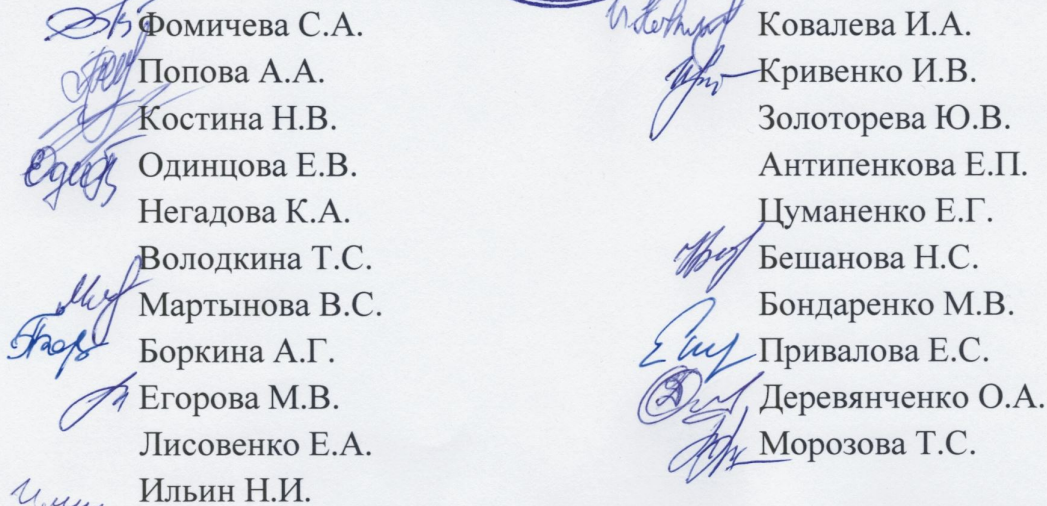 Фомичева С.А.
Попова А.А.
Костина Н.В.
Одинцова Е.В.
Негадова К.А.
Володкина Т.С.
Мартынова В.С.
Боркина А.Г.
Егорова М.В.
Лисовенко Е.А.
Ильин Н.И.
Ковалева И.А.
Кривенко И.В.
Золоторева Ю.В.
Антипенкова Е.П.
Цуманенко Е.Г.
Бешанова Н.С.
Бондаренко М.В.
Привалова Е.С.
Деревянченко О.А.
Морозова Т.С.